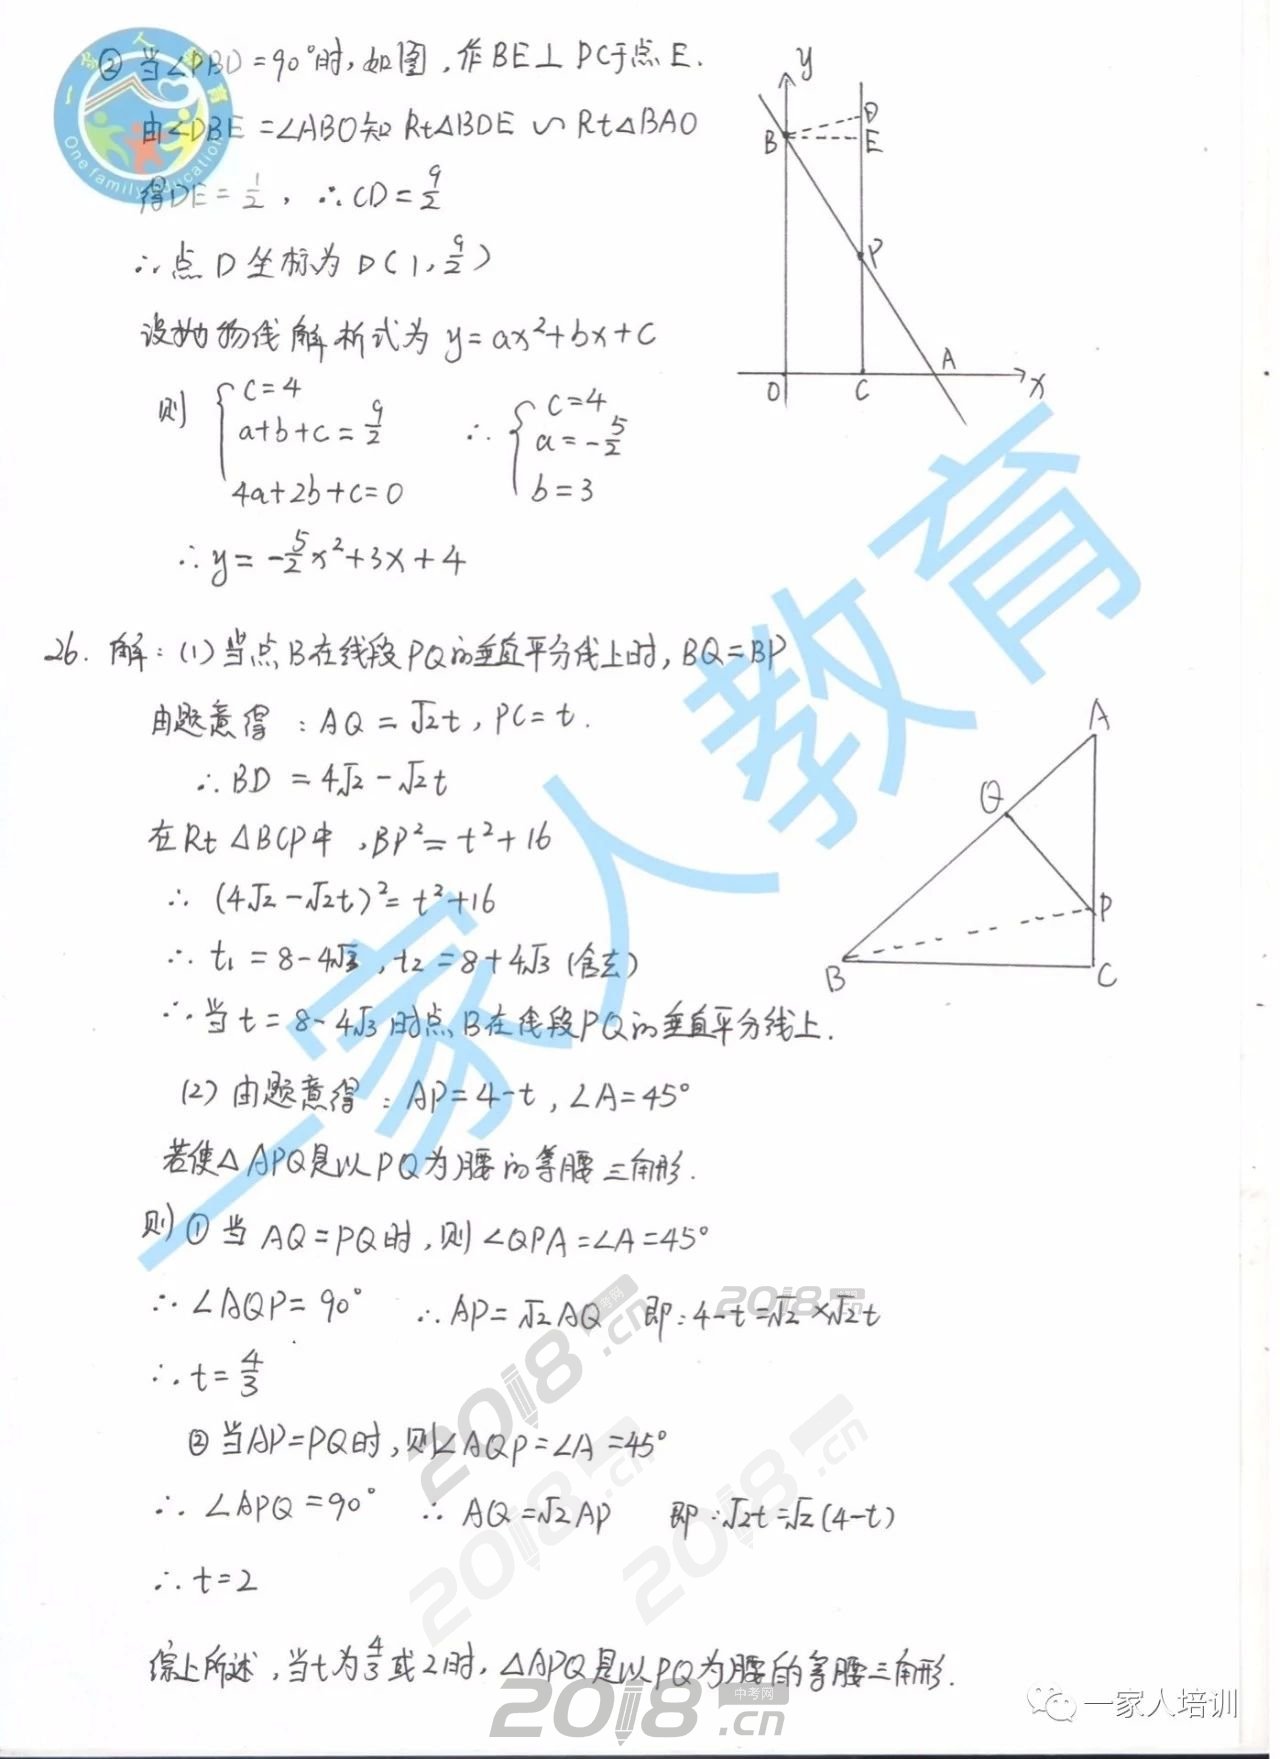 ② 当∠PBD=90°时,如图,作BE⊥PC于点E.
由∠DBE=∠ABO知 Rt△BDE∽Rt△BAO
得DE=1/2, ∴CD=9/2
∴点D坐标为D(1,9/2)
设抛物线解析式为 y=ax²+bx+c
则 { c=4
a+b+c=9/2
4a+2b+c=0
∴ { c=4
a=-5/2
b=3
∴y=-5/2x²+3x+4
y
B
D
E
P
A
O
C
x
26. 解:(1)当点B在线段PQ的垂直平分线上时,BQ=BP
由题意得:AQ=√2t,PC=t.
∴BD=4√2-√2t
在Rt△BCP中,BP²=t²+16
∴ (4√2-√2t)²=t²+16
∴ t₁=8-4√3,t₂=8+4√3(舍去)
∴当t=8-4√3时点B在线段PQ的垂直平分线上.
A
Q
P
B
C
(2)由题意得:AP=4-t,∠A=45°
若使△APQ是以PQ为腰的等腰三角形.
则①当AQ=PQ时,则∠QPA=∠A=45°
∴∠AQP=90° ∴AP=√2AQ 即:4-t=√2×√2t
∴t=4/3
②当AP=PQ时,则∠AQP=∠A=45°
∴∠APQ=90° ∴AQ=√2AP 即:√2t=√2(4-t)
∴t=2
综上所述,当t为4/3或2时,△APQ是以PQ为腰的等腰三角形.
一家人教育
One family education
2018.cn
2018.cn
2018.cn
2018.cn
2018中考网.cn
一家人培训